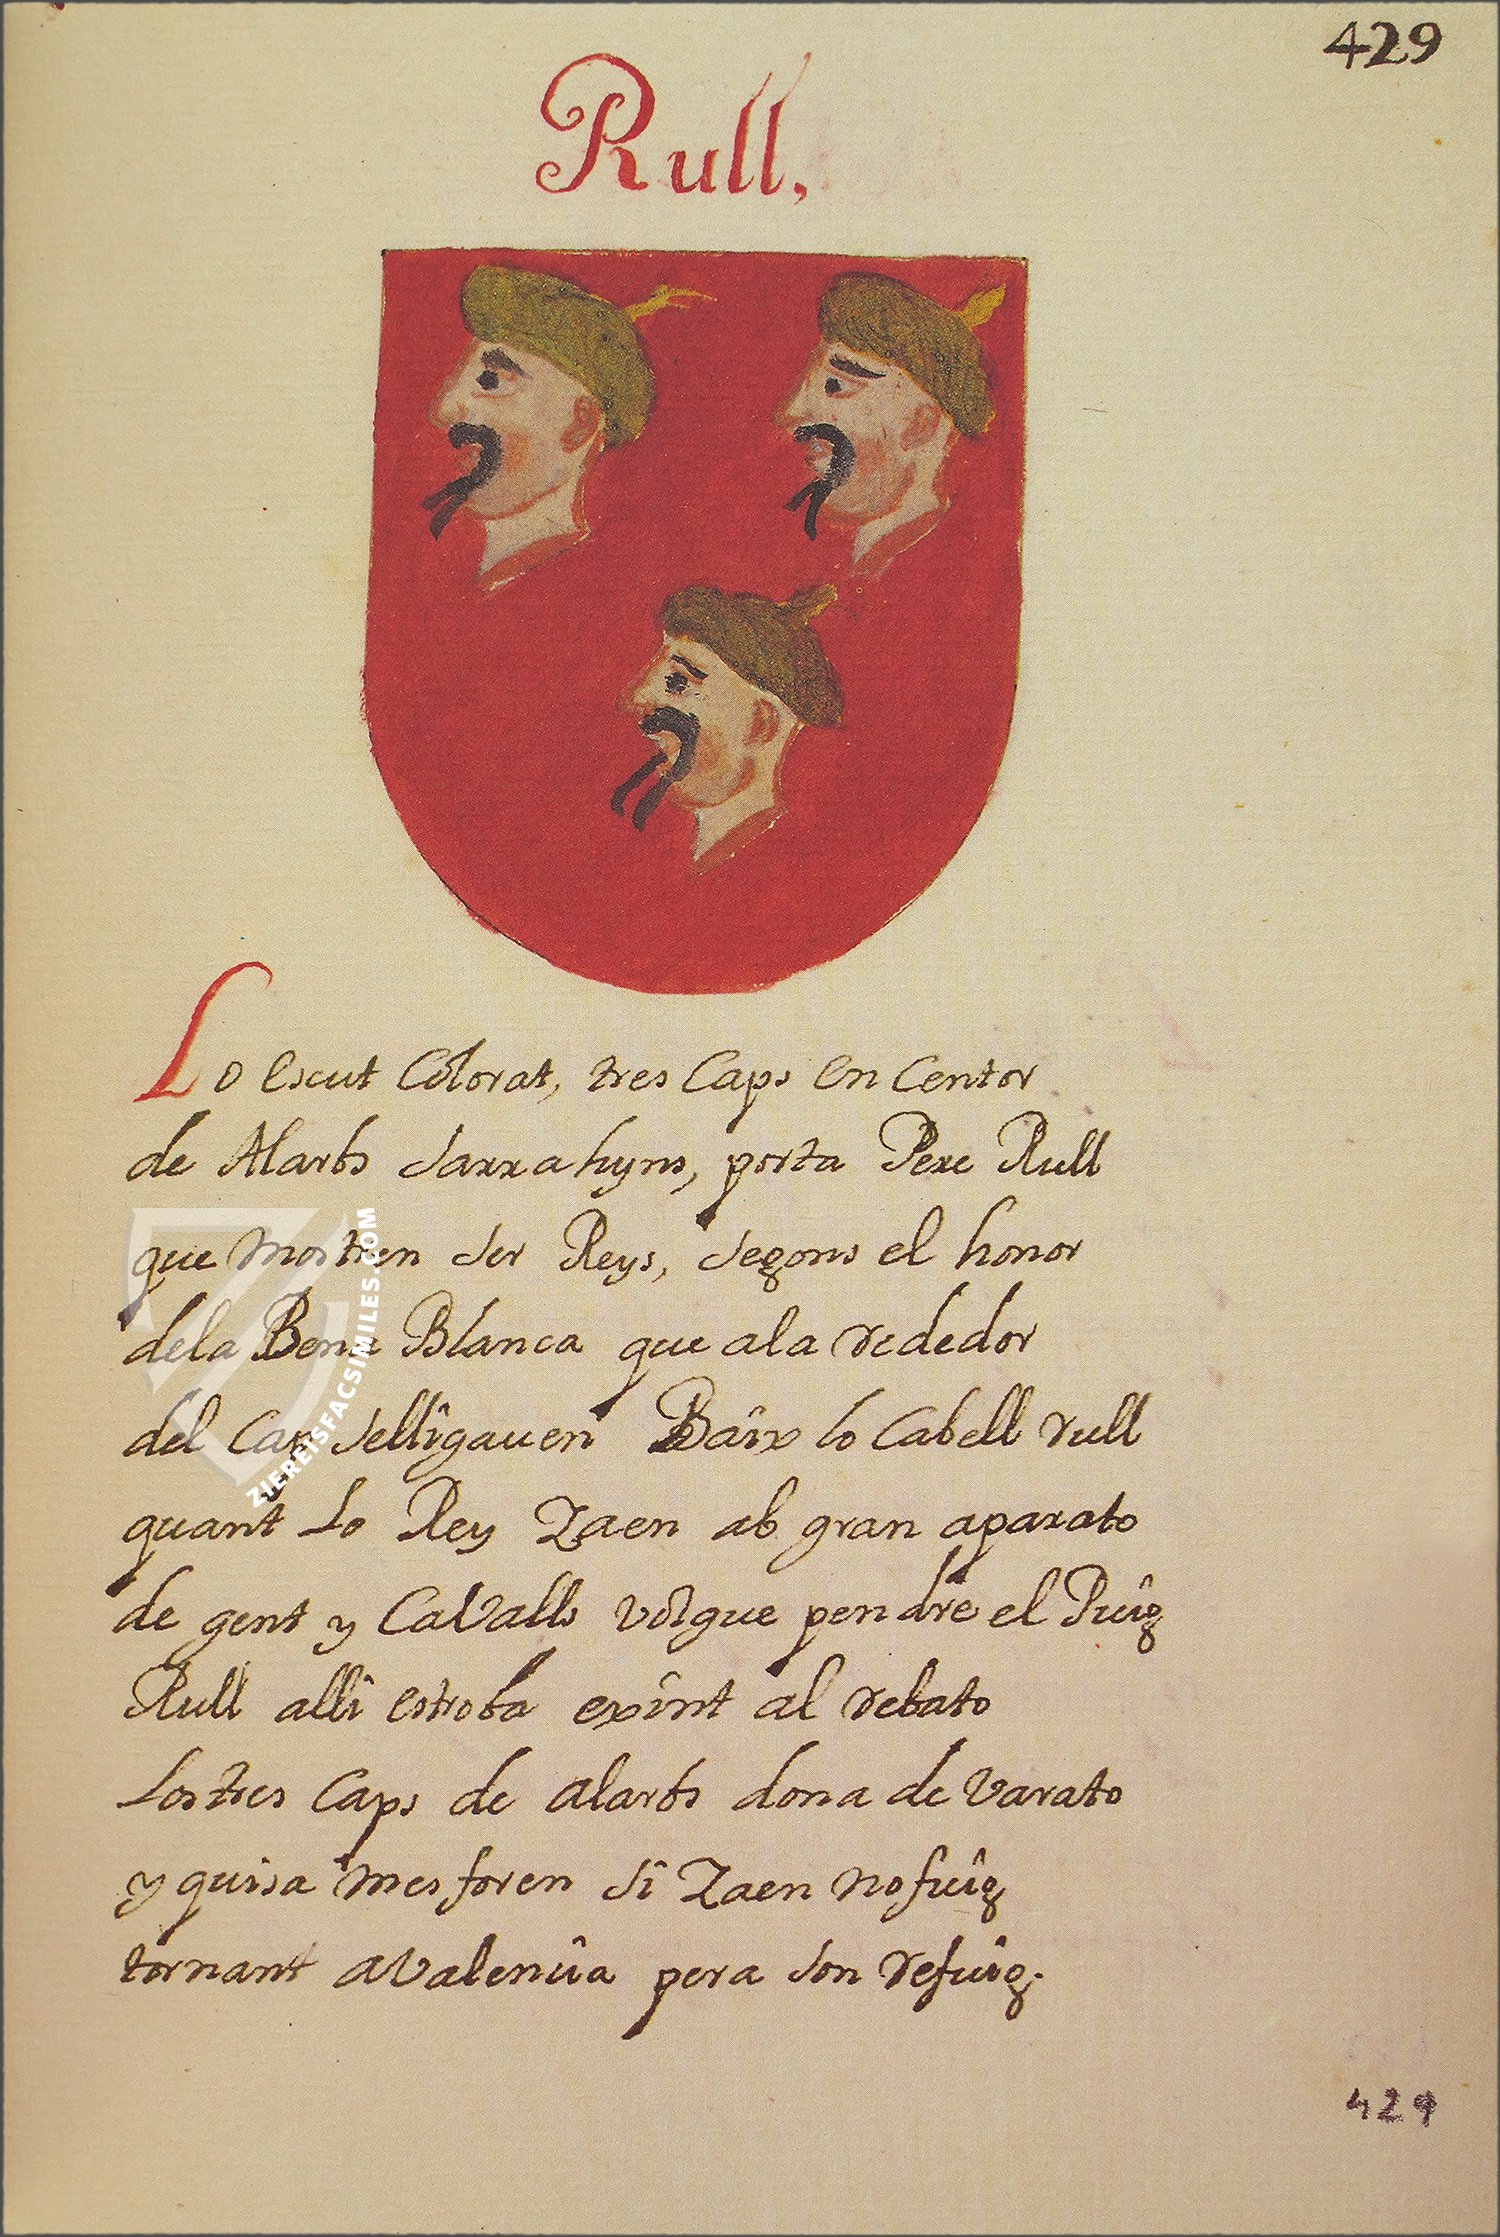 429
Rull,
Lo escut Colorat, tres Caps en Centor
de Alarbs sarrahyns, porta Pere Rull
que mostren ser Reys, segons el honor
dela Bena Blanca que ala rededor
del Cap selligauen Baix lo Cabell rull
quant Lo Rey Zaen ab gran aparato
de gent y Cavalls volgue pendre el Puig
Rull alli estroba exint al rebato
Los tres Caps de alarbs dona de Varato
y quisa mes foren si Zaen no fuig
tornant a Valencia pera son refuig.
429
ZIEREISFACSIMILES.COM